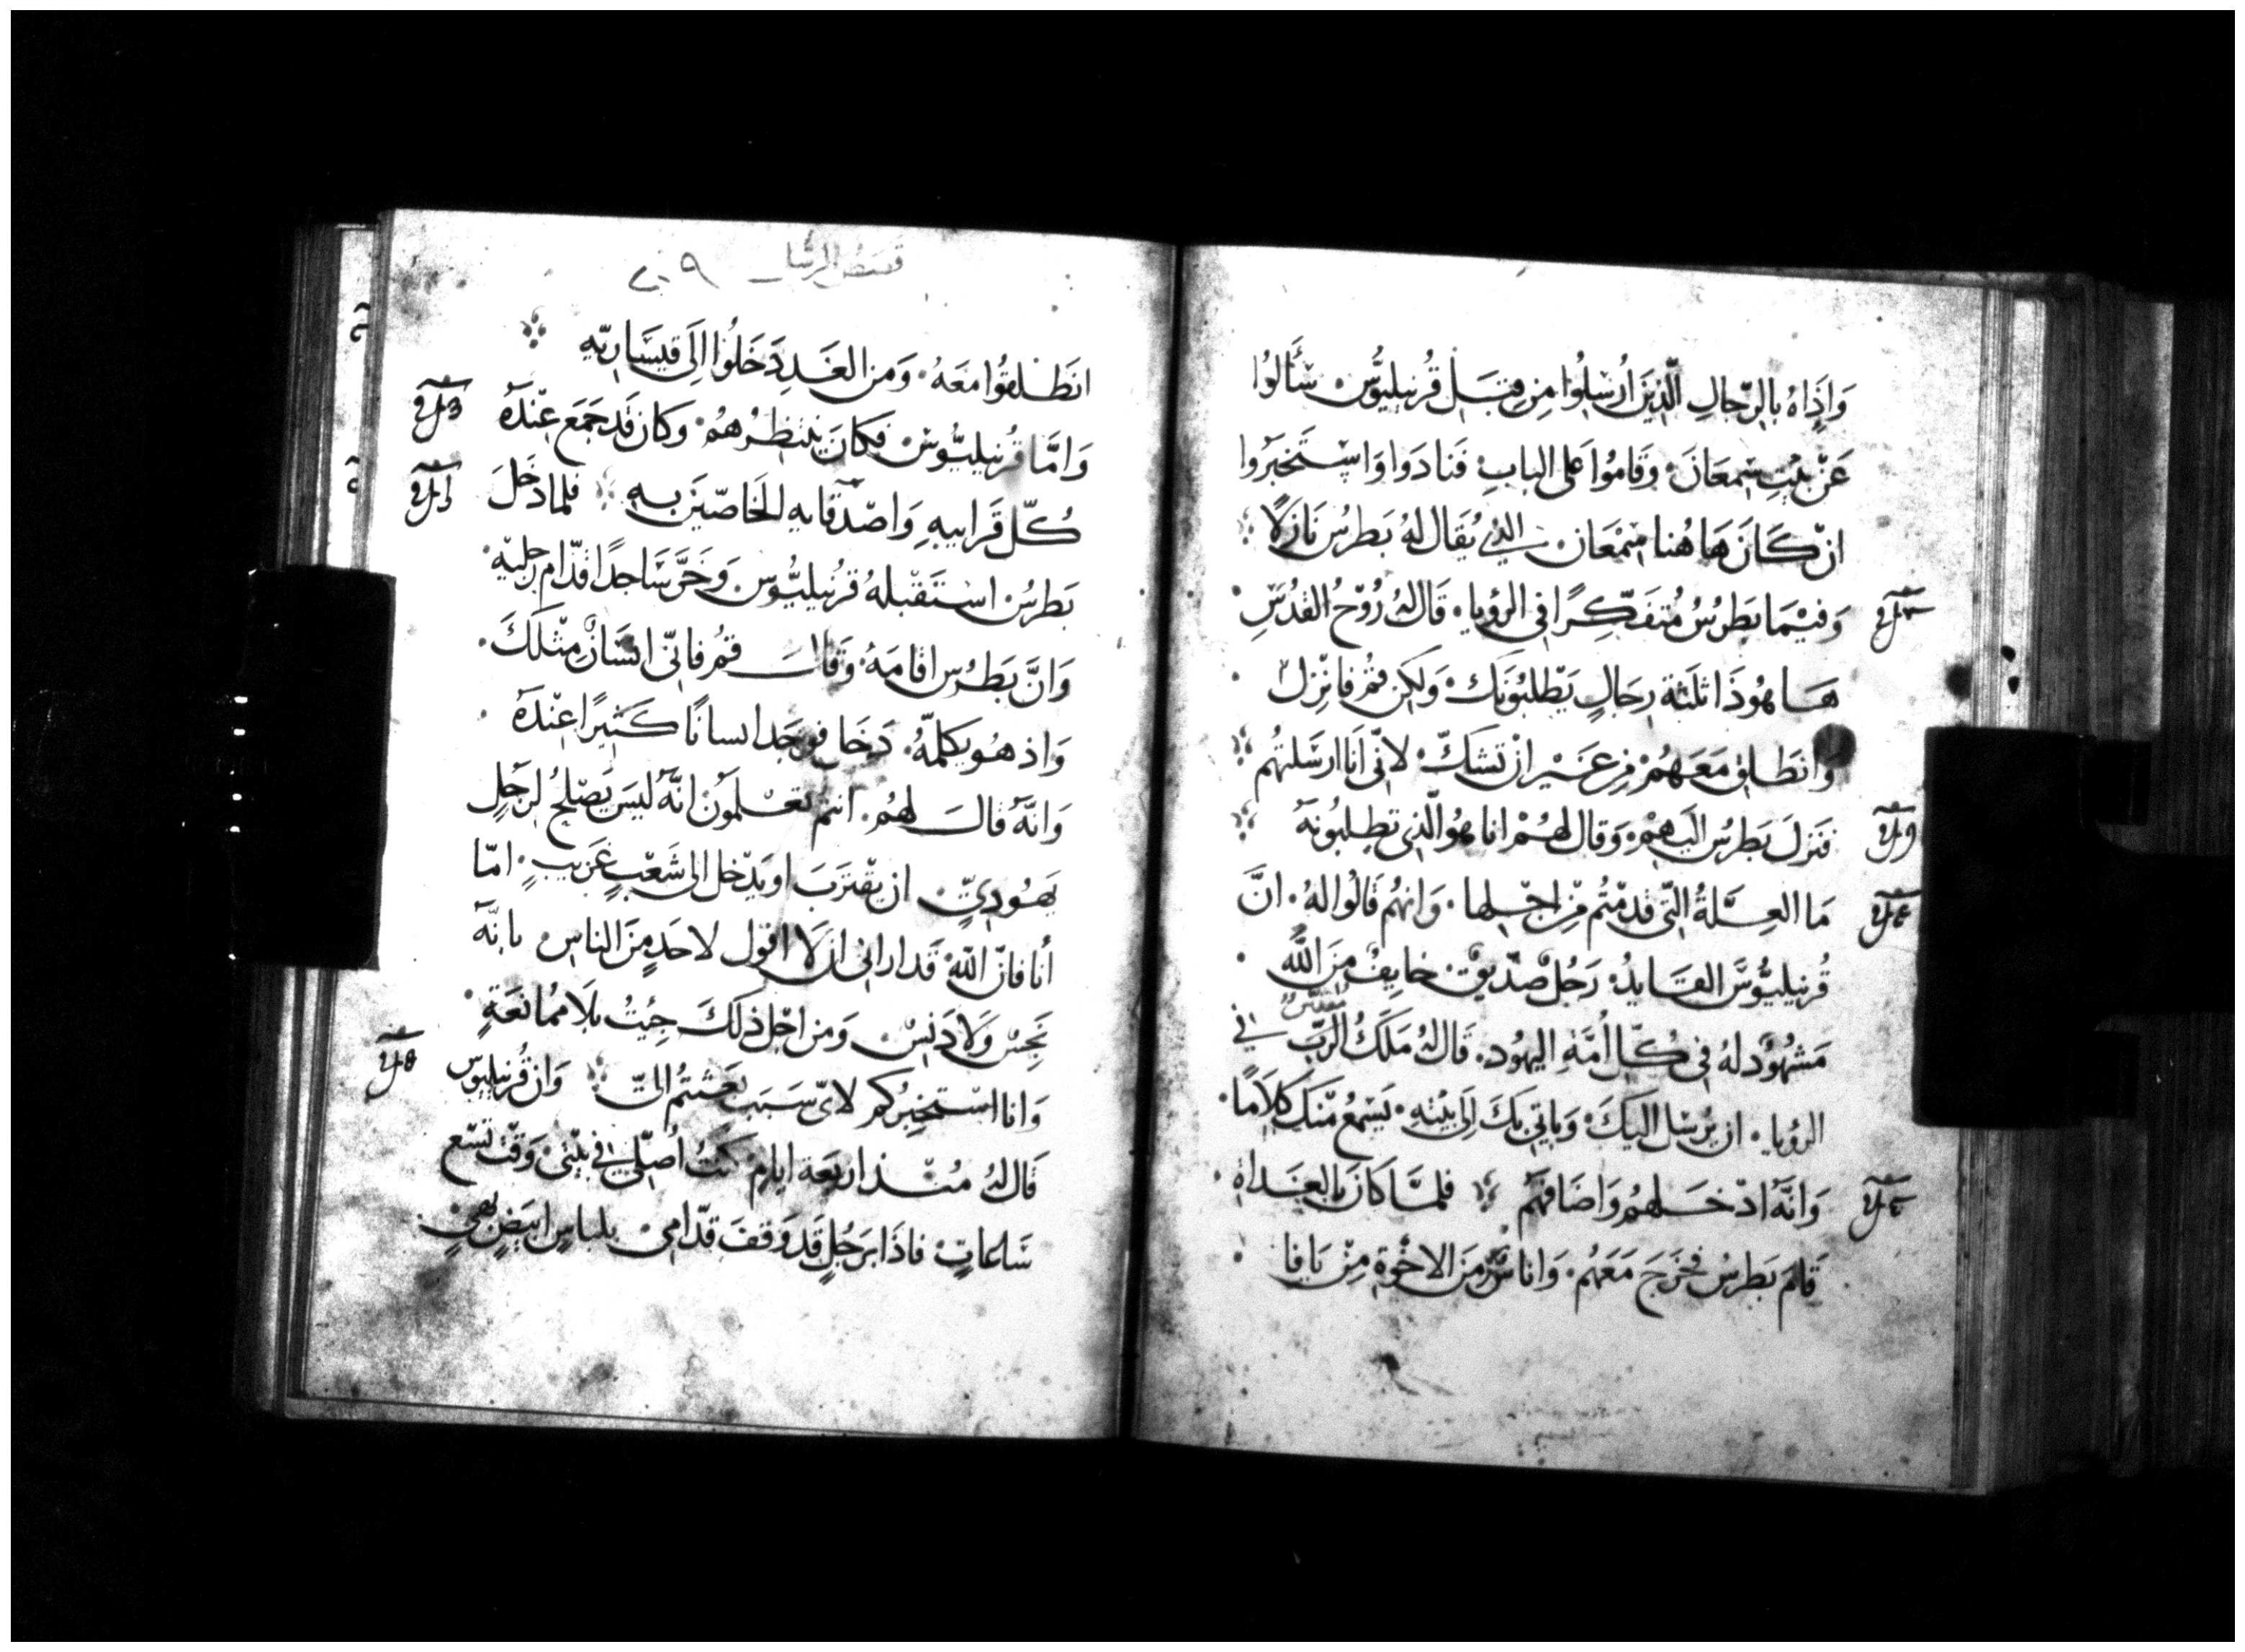 وَاِذَاهُ بالرِّجالِ الَّذِينَ اُرْسِلُوا مِن قِبَل قُرنيليُّوس. سَأَلوُا
عَنْ بَيْتِ سِمعَانَ. وَقَامُوا عَلى البابِ فَنادَوا وَاسْتَخبَرُوا
انْ كَانَ هَاهُنا سِمْعَان. الذي يُقَال لهُ بَطرسُ نَازِلًا
وَفيْمَا بَطرسُ مُتفَكِّرًا في الرؤيا. قَال لهُ رُوْحُ القدُسِ.
هَا هُوذَا ثلثة رِجَالٍ يَطْلبُونَك. وَلكِن قمْ فانْزِلْ.
وَانطَلِق مَعَهُمْ مِن غَيْرِ انْ تشكّ. لانّى اَنَا ارسَلتهُم
فنَزلَ بَطرسُ اليهِمْ. وَقال لهُمْ انا هُوَ الَّذي تطلبُونهُ
مَا العِلّةُ الَّتي قدمْتُم مِنْ اجْلِها. وَانهُم قَالُوا لهُ. انَّ
قُرنيليُّوسَ القَايدُ. رَجُلٌ صدّيقٌ. خايفٌ مِنَ اللّهِ.
مَشهُوْدٌ لهُ في كُلّ اُمّةِ اليهُود. قَال لهُ مَلَكُ الرَّبّ مقدّسٌ في
الرؤيا. ان يُرسل اليكَ. وَياتي بكَ اِلى بَيْتهِ. يَسْمعُ مِنكَ كَلَامًا.
وَانَّهُ ادْخَلهُمْ وَاضَافهُمْ فلمَّا كَانَ بالغَداةِ.
قَامَ بَطرسُ فخَرجَ مَعَهُم. وَاناسٌ مِنَ الاخْوَةِ مِنْ يَافا.
قصص الرسل ٢٠٩
انطَلقُوا مَعَهُ. وَمن الغَدِ دَخَلُوْا اِلَى قيسَاريّهِ
وَامَّا قُرنيليُّوسْ فكَانَ ينتظرُهُمْ. وكانَ قَد جَمَع عِنْدَهُ
كُلّ قَرابيهِ وَاصْدقايهِ الخَاصّيْنَ بهِ فلما دَخَلَ
بَطرسُ اسْتَقْبلهُ قرْنيليُّوس وَخَرَّ سَاجدًا قدّام رجليْهِ.
وَانَّ بَطرُس اقامَهُ. وَقال قمْ فاني انسَانٌ مِثْلكَ.
وَاذ هُو يكلمهُ. دَخَل فوجَد انسانًا كَثيرًا عِنْدَهُ.
وَانَّهُ قالَ لهُم. انتم تعْلمُونَ انّهُ ليسَ يَصْلحُ لرَجُلٍ
يَهُوديّ. ان يقْترَبَ او يَدْخل الى شَعْبٍ غريبٍ. امّا
اَنا فانّ اللّه قَد اراني ان لَا اقول لاحَدٍ مِنَ الناس بانّهُ
نَجِسٌ وَلَا دَنِسٌ. وَمن اجْل ذلكَ جِئتُ بلَا ممُانعَةٍ.
وَانا اسْتخبِركُم لايّ سَبَبٍ بعَثتُمْ اليّ وَان قُرنيليوس
قَال لهُ مُنْذ اربَعة ايام. كنتُ اُصلّي في بَيْتي. وَقت تسْع
سَاعَاتٍ. فاذَا برَجُلٍ قَد وَقفَ قدّامي. بلباسٍ ابيَضٍ بَهيٍ.